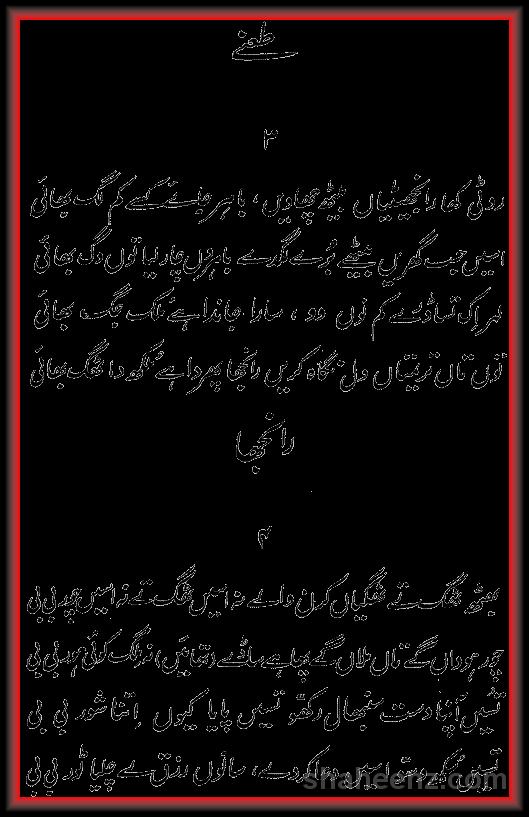 طعنے
۳
روٹی کھا رانجھیٹیاں بیٹھ چھاویں، باہر جائے کسے کم لگ بھائی
اسیں جیب گھریں بیٹھے بُرے گرے باہروں چار لیا توں وگ بھائی
ہر اک تساڈے کم نوں دو، سارا جاندا ہے ملک جگ بھائی
توں تاں تریمتاں ول نگاہ کریں رانجھا پھردا ہے مُکھ دا ٹھگ بھائی
رانجھا
۴
ٹھگ تے ٹھگیاں کرن والے نہ اسیں ٹھگ تے نہ اسیں چور بی بی
چور ہوواں گے تاں ملاں گے جا ہے ساڈے نہ لگ کوئی ہور بی بی
تسیں اپنا دست سنبھال رکھو تسیں پایا کیوں اتنا شور بی بی
تسیں اسیں دعا کردے، سانوں رزق لے چلیا ٹور بی بی
shaheenz.com